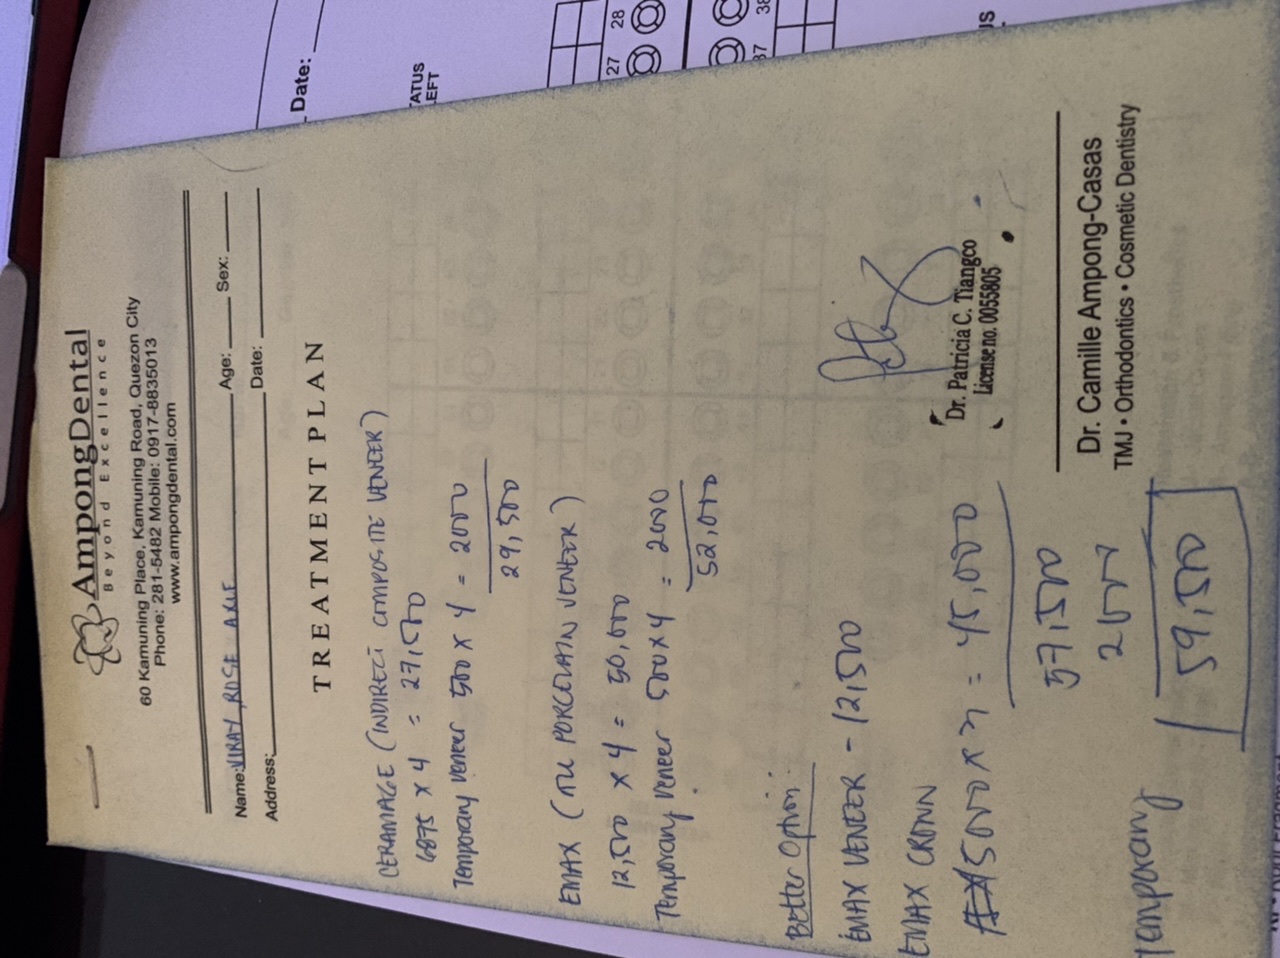 AmpongDental
Beyond Excellence
60 Kamuning Place, Kamuning Road, Quezon City
Phone: 281-5482 Mobile: 0917-8835013
www.ampongdental.com
Name: VIRAY, ROSE Age: Sex:
Address: Date:
TREATMENT PLAN
CERAMAGE (INDIRECT COMPOSITE VENEER)
6875 x 4 = 27,500
Temporary Veneer 500 x 4 = 2000
29,500
EMAX (ALL PORCELAIN VENEER)
12,500 x 4 = 50,000
Temporary Veneer 500 x 4 = 2000
52,000
Better Option:
EMAX VENEER - 12,500
EMAX CROWN
15000 x 3 = 45,000
57,500
Temporary 2000
59,500
Dr. Patricia C. Tiangco
License no. 0055805
Dr. Camille Ampong-Casas
TMJ • Orthodontics • Cosmetic Dentistry
Date:
ATUS
EFT
27 28
37 38
US